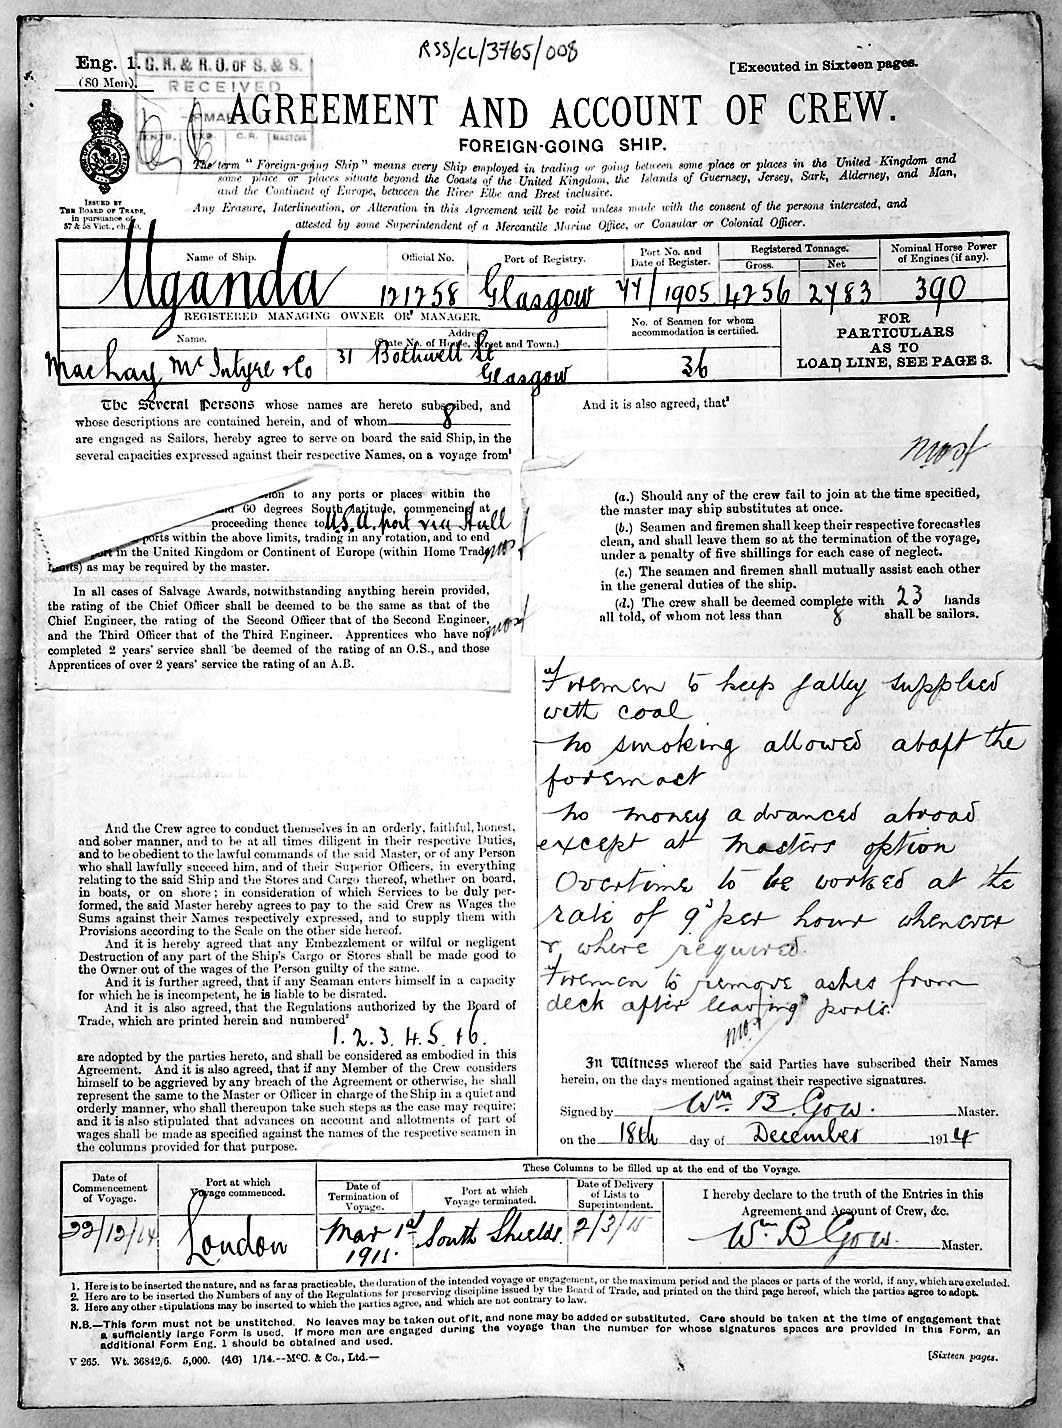 RSS/CL/3765/008
Eng. 1.
(80 Men).
C. R. & R. O. OF S. & S.
RECEIVED
ENTD. EXD. C.R. MASTERS
[Executed in Sixteen pages.
AGREEMENT AND ACCOUNT OF CREW.
FOREIGN-GOING SHIP.
The term "Foreign-going Ship" means every Ship employed in trading or going between some place or places in the United Kingdom and
some place or places situate beyond the Coasts of the United Kingdom, the Islands of Guernsey, Jersey, Sark, Alderney, and Man,
and the Continent of Europe, between the River Elbe and Brest inclusive.
Any Erasure, Interlineation, or Alteration in this Agreement will be void unless made with the consent of the persons interested, and
attested by some Superintendent of a Mercantile Marine Office, or Consular or Colonial Officer.
ISSUED BY
THE BOARD OF TRADE,
in pursuance of
57 & 58 Vict., ch.
Name of Ship.
Uganda
Official No.
121258
Port of Registry.
Glasgow
Port No. and
Date of Register.
77/1905
Registered Tonnage.
Gross. Net
4256 2783
Nominal Horse Power
of Engines (if any).
390
REGISTERED MANAGING OWNER OR MANAGER.
Name.
MacLay McIntyre & Co
Address
(State No. of House, Street and Town.)
31 Bothwell St
Glasgow
No. of Seamen for whom
accommodation is certified.
36
FOR
PARTICULARS
AS TO
LOAD LINE, SEE PAGE 3.
The Several Persons whose names are hereto subscribed, and
whose descriptions are contained herein, and of whom 8
are engaged as Sailors, hereby agree to serve on board the said Ship, in the
several capacities expressed against their respective Names, on a voyage from¹
to any ports or places within the
60 degrees South latitude, commencing at
proceeding thence to U.S.A. port via Hull
ports within the above limits, trading in any rotation, and to end
in the United Kingdom or Continent of Europe (within Home Trade
limits) as may be required by the master.
In all cases of Salvage Awards, notwithstanding anything herein provided,
the rating of the Chief Officer shall be deemed to be the same as that of the
Chief Engineer, the rating of the Second Officer that of the Second Engineer,
and the Third Officer that of the Third Engineer. Apprentices who have not
completed 2 years' service shall be deemed of the rating of an O.S., and those
Apprentices of over 2 years' service the rating of an A.B.
And the Crew agree to conduct themselves in an orderly, faithful, honest,
and sober manner, and to be at all times diligent in their respective Duties,
and to be obedient to the lawful commands of the said Master, or of any Person
who shall lawfully succeed him, and of their Superior Officers, in everything
relating to the said Ship and the Stores and Cargo thereof, whether on board,
in boats, or on shore; in consideration of which Services to be duly per-
formed, the said Master hereby agrees to pay to the said Crew as Wages the
Sums against their Names respectively expressed, and to supply them with
Provisions according to the Scale on the other side hereof.
And it is hereby agreed that any Embezzlement or wilful or negligent
Destruction of any part of the Ship's Cargo or Stores shall be made good to
the Owner out of the wages of the Person guilty of the same.
And it is further agreed, that if any Seaman enters himself in a capacity
for which he is incompetent, he is liable to be disrated.
And it is also agreed, that the Regulations authorized by the Board of
Trade, which are printed herein and numbered²
1. 2. 3. 4. 5. & 6.
are adopted by the parties hereto, and shall be considered as embodied in this
Agreement. And it is also agreed, that if any Member of the Crew considers
himself to be aggrieved by any breach of the Agreement or otherwise, he shall
represent the same to the Master or Officer in charge of the Ship in a quiet and
orderly manner, who shall thereupon take such steps as the case may require;
and it is also stipulated that advances on account and allotments of part of
wages shall be made as specified against the names of the respective seamen in
the columns provided for that purpose.
And it is also agreed, that³
(a.) Should any of the crew fail to join at the time specified,
the master may ship substitutes at once.
(b.) Seamen and firemen shall keep their respective forecastles
clean, and shall leave them so at the termination of the voyage,
under a penalty of five shillings for each case of neglect.
(c.) The seamen and firemen shall mutually assist each other
in the general duties of the ship.
(d.) The crew shall be deemed complete with 23 hands
all told, of whom not less than 8 shall be sailors.
"Firemen to keep galley supplied
with coal
no smoking allowed abaft the
foremast
no money advanced abroad
except at masters option
Overtime to be worked at the
rate of 9d per hour whenever
& where required.
Firemen to remove ashes from
deck after leaving ports."
In Witness whereof the said Parties have subscribed their Names
herein, on the days mentioned against their respective signatures.
Signed by Wm. B. Gow. Master.
on the 18th day of December 1914
These Columns to be filled up at the end of the Voyage.
Date of
Commencement
of Voyage.
22/12/14
Port at which
Voyage commenced.
London
Date of
Termination of
Voyage.
Mar 1st
1915.
Port at which
Voyage terminated.
South Shields.
Date of Delivery
of Lists to
Superintendent.
2/3/15
I hereby declare to the truth of the Entries in this
Agreement and Account of Crew, &c.
Wm B Gow. Master.
1. Here is to be inserted the nature, and as far as practicable, the duration of the intended voyage or engagement, or the maximum period and the places or parts of the world, if any, which are excluded.
2. Here are to be inserted the Numbers of any of the Regulations for preserving discipline issued by the Board of Trade, and printed on the third page hereof, which the parties agree to adopt.
3. Here any other stipulations may be inserted to which the parties agree, and which are not contrary to law.
N.B.—This form must not be unstitched. No leaves may be taken out of it, and none may be added or substituted. Care should be taken at the time of engagement that
a sufficiently large Form is used. If more men are engaged during the voyage than the number for whose signatures spaces are provided in this Form, an
additional Form Eng. 1 should be obtained and used.
V 265. Wt. 36842/6. 5,000. (46) 1/14.—McC. & Co., Ltd.—
[Sixteen pages.